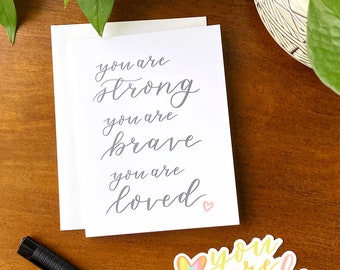 you are
strong
you are
brave
you are
loved
you
are